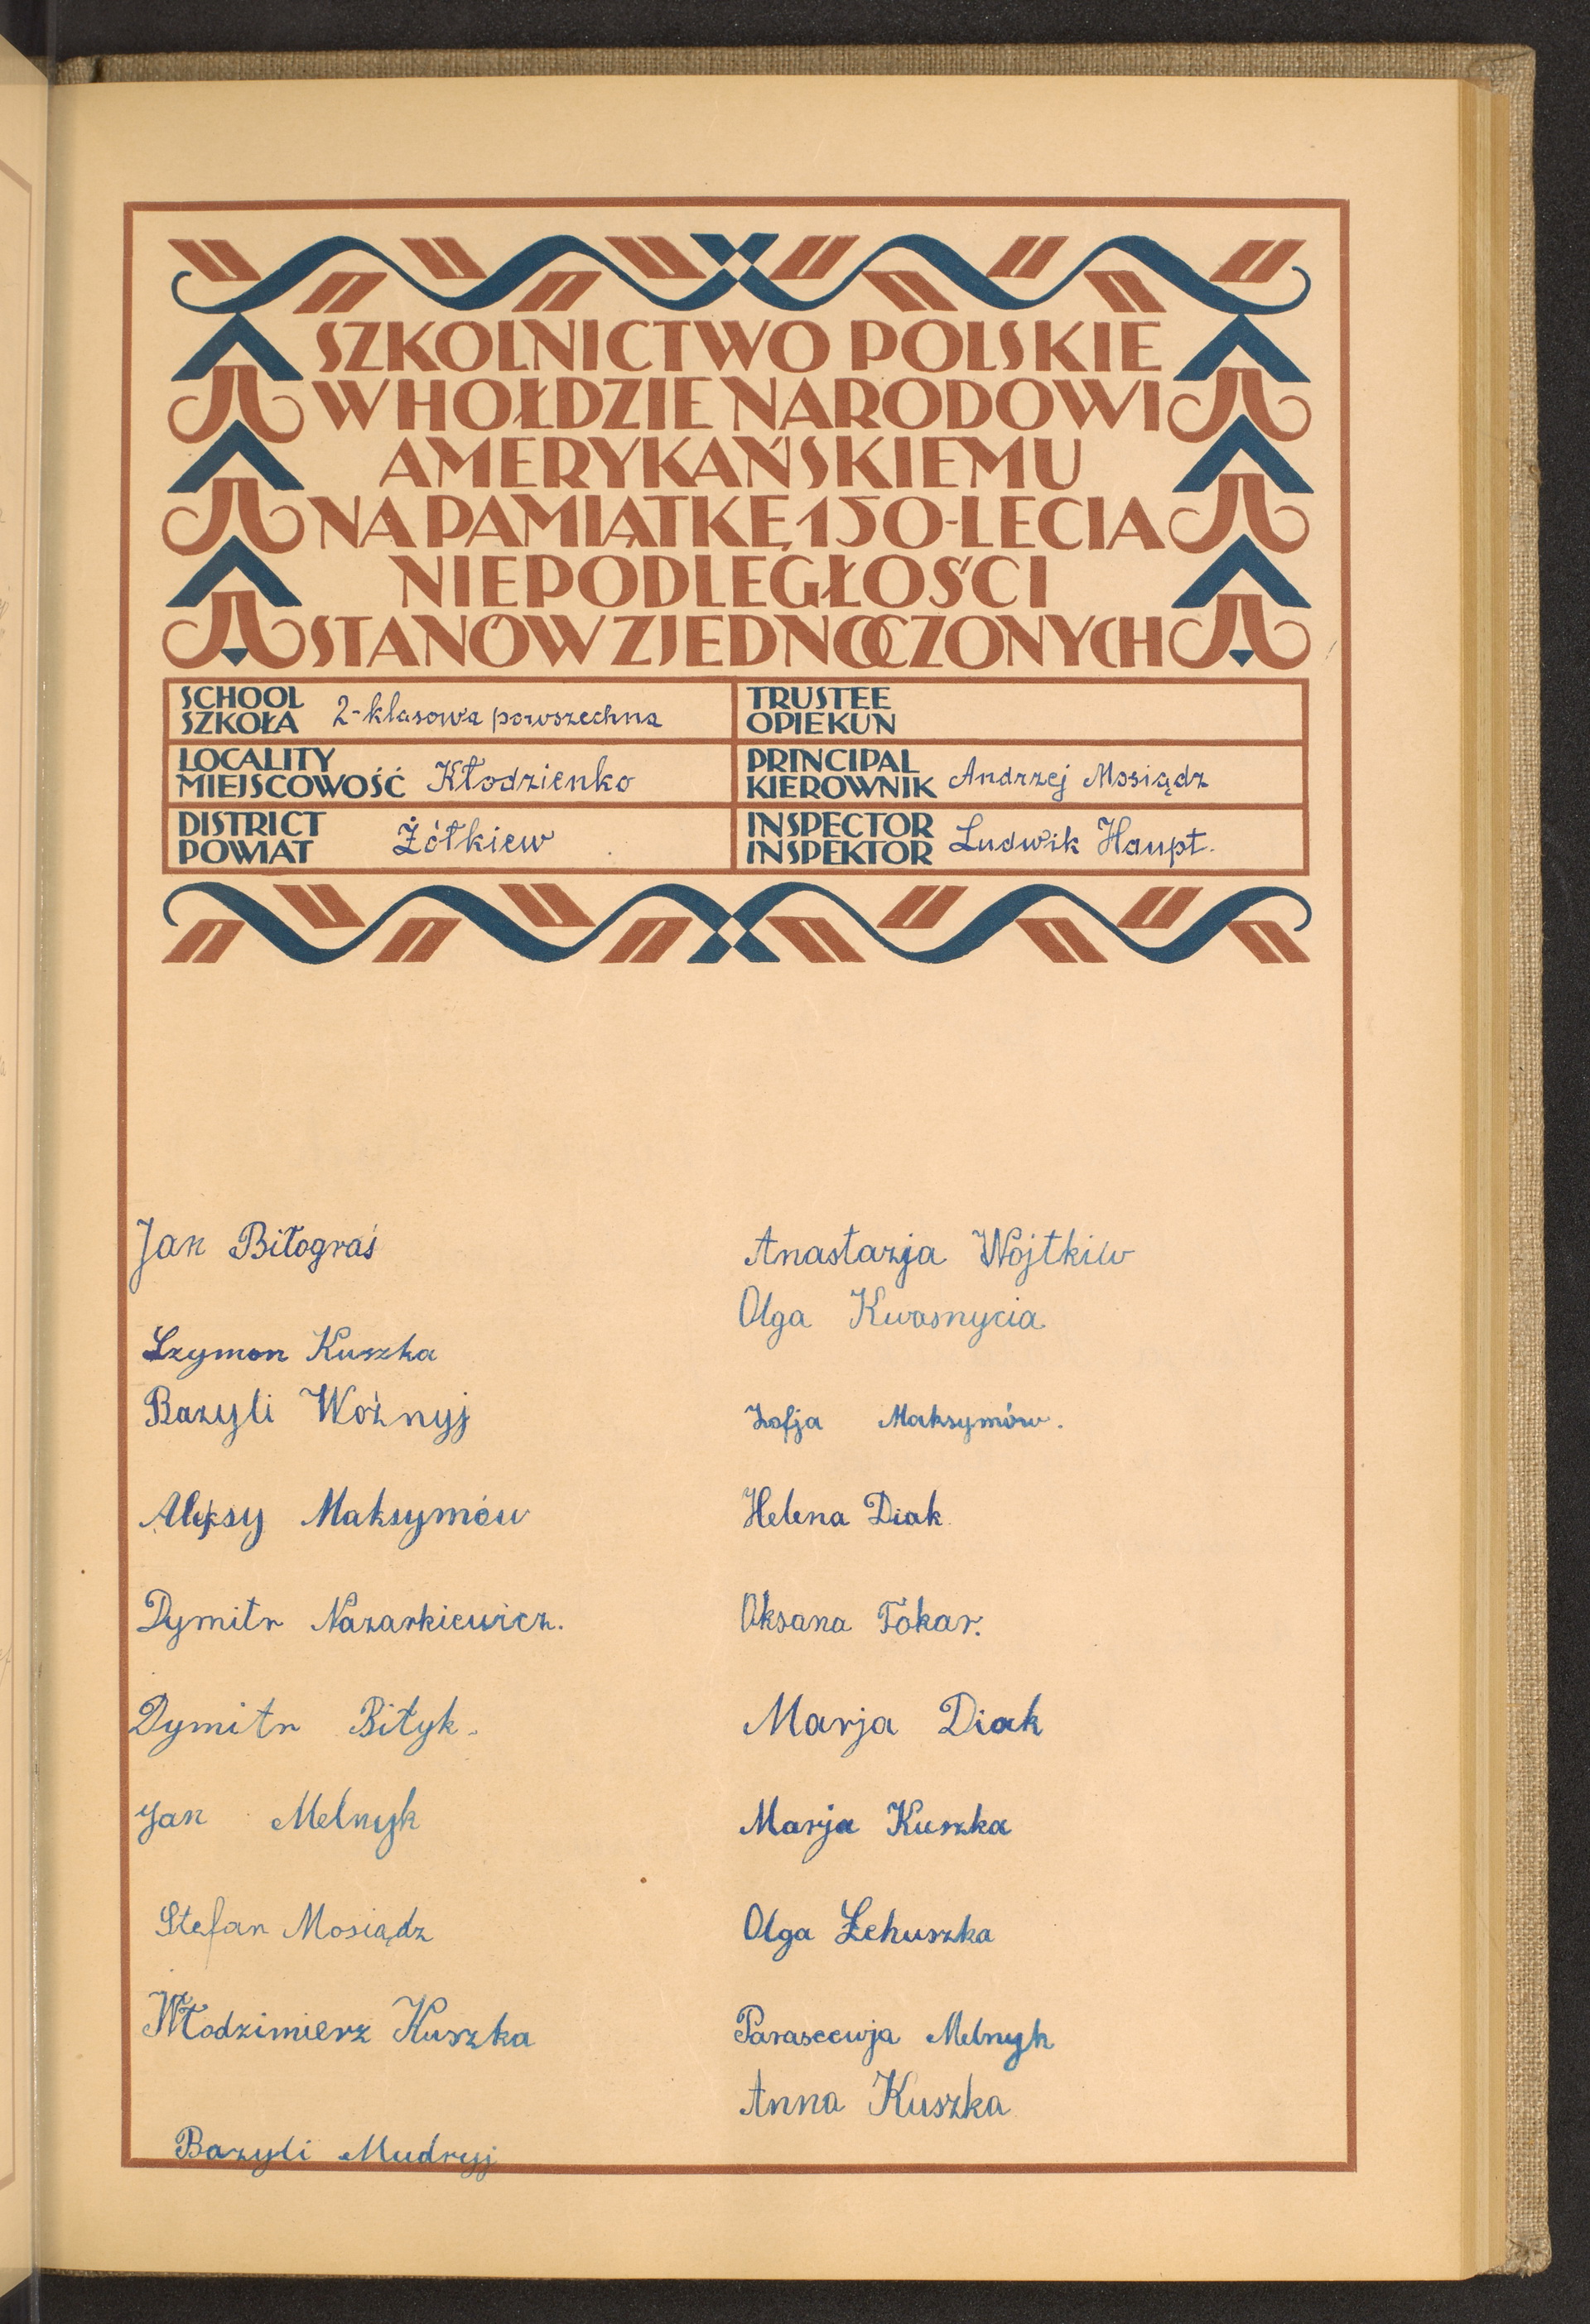 SZKOLNICTWO POLSKIE
W HOŁDZIE NARODOWI
AMERYKAŃSKIEMU
NA PAMIĄTKĘ 150-LECIA
NIEPODLEGŁOŚCI
STANÓW ZJEDNOCZONYCH
SCHOOL
SZKOŁA 2-klasowa powszechna
TRUSTEE
OPIEKUN
LOCALITY
MIEJSCOWOŚĆ Kłodzienko
PRINCIPAL
KIEROWNIK Andrzej Mosiądz
DISTRICT
POWIAT Żółkiew
INSPECTOR
INSPEKTOR Ludwik Haupt.
Jan Biłograś
Szymon Kuszka
Bazyli Woźnyj
Aleksy Maksymów
Dymitr Nazarkiewicz.
Dymitr Biłyk.
Jan Melnyk
Stefan Mosiądz
Włodzimierz Kuszka
Bazyli Mudryj
Anastazja Wojtkiw
Olga Kwasnycia
Zofja Maksymów.
Helena Diak
Oksana Tokar.
Marja Diak
Marja Kuszka
Olga Łehuszka
Parascewja Melnyk
Anna Kuszka